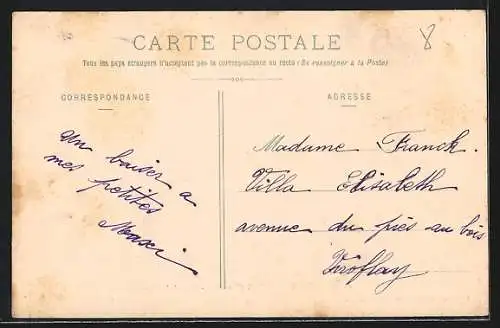 CARTE POSTALE
Tous les pays étrangers n'acceptent pas la correspondance au recto (Se renseigner à la Poste)
CORRESPONDANCE
un baiser a
mes petites
ADRESSE
Madame Franck.
Villa Elisabeth
avenue du près au bois
Viroflay
8